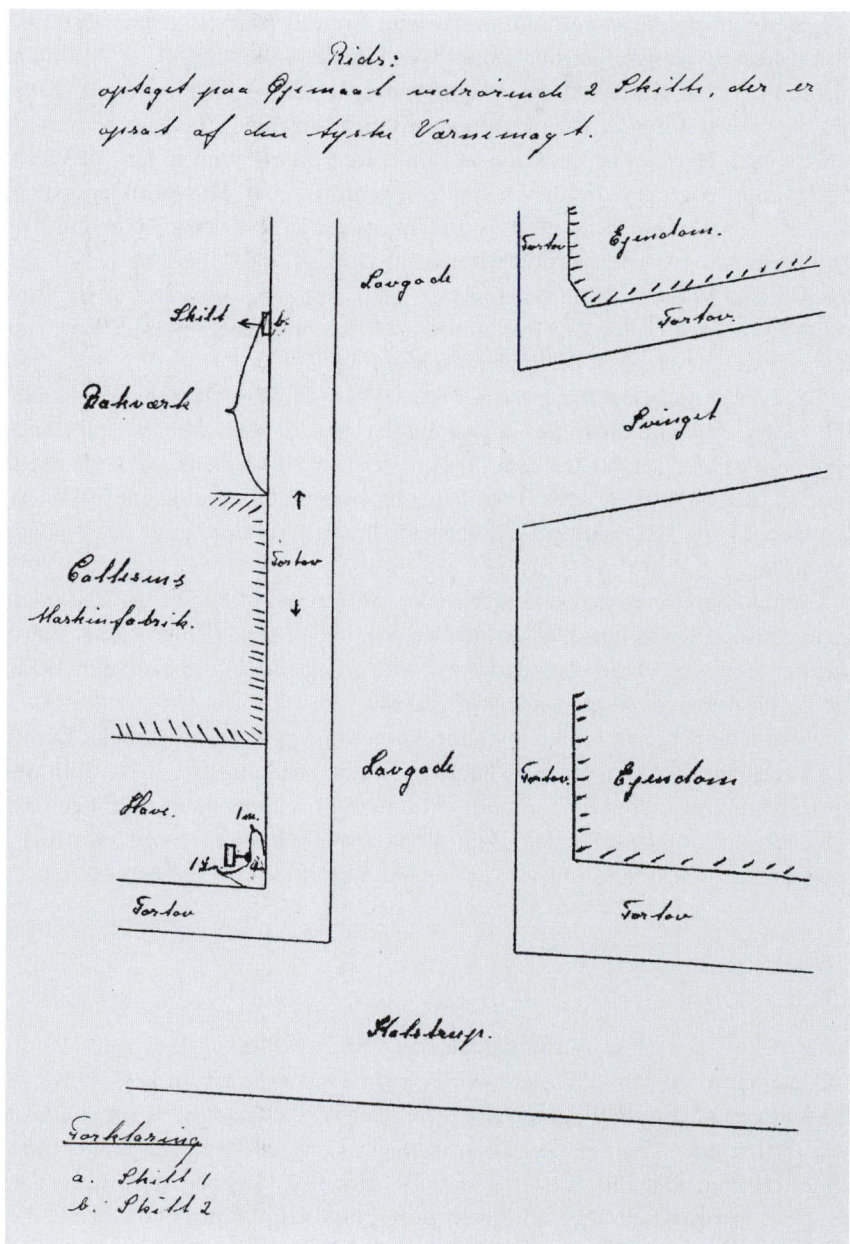 Rids:
optaget paa Øjemaal vedrørende 2 Skilte, der er
opsat af den tyske Værnemagt.
Fortov
Ejendom.
Lavgade
Skilt
b.
Fortov.
Rakværk
Svinget
Fortov
Callesens
Maskinfabrik.
Lavgade
Fortov.
Ejendom
Have.
1 m.
a.
Fortov
Fortov
Kolstrup.
Forklaring
a. Skilt 1
b. Skilt 2